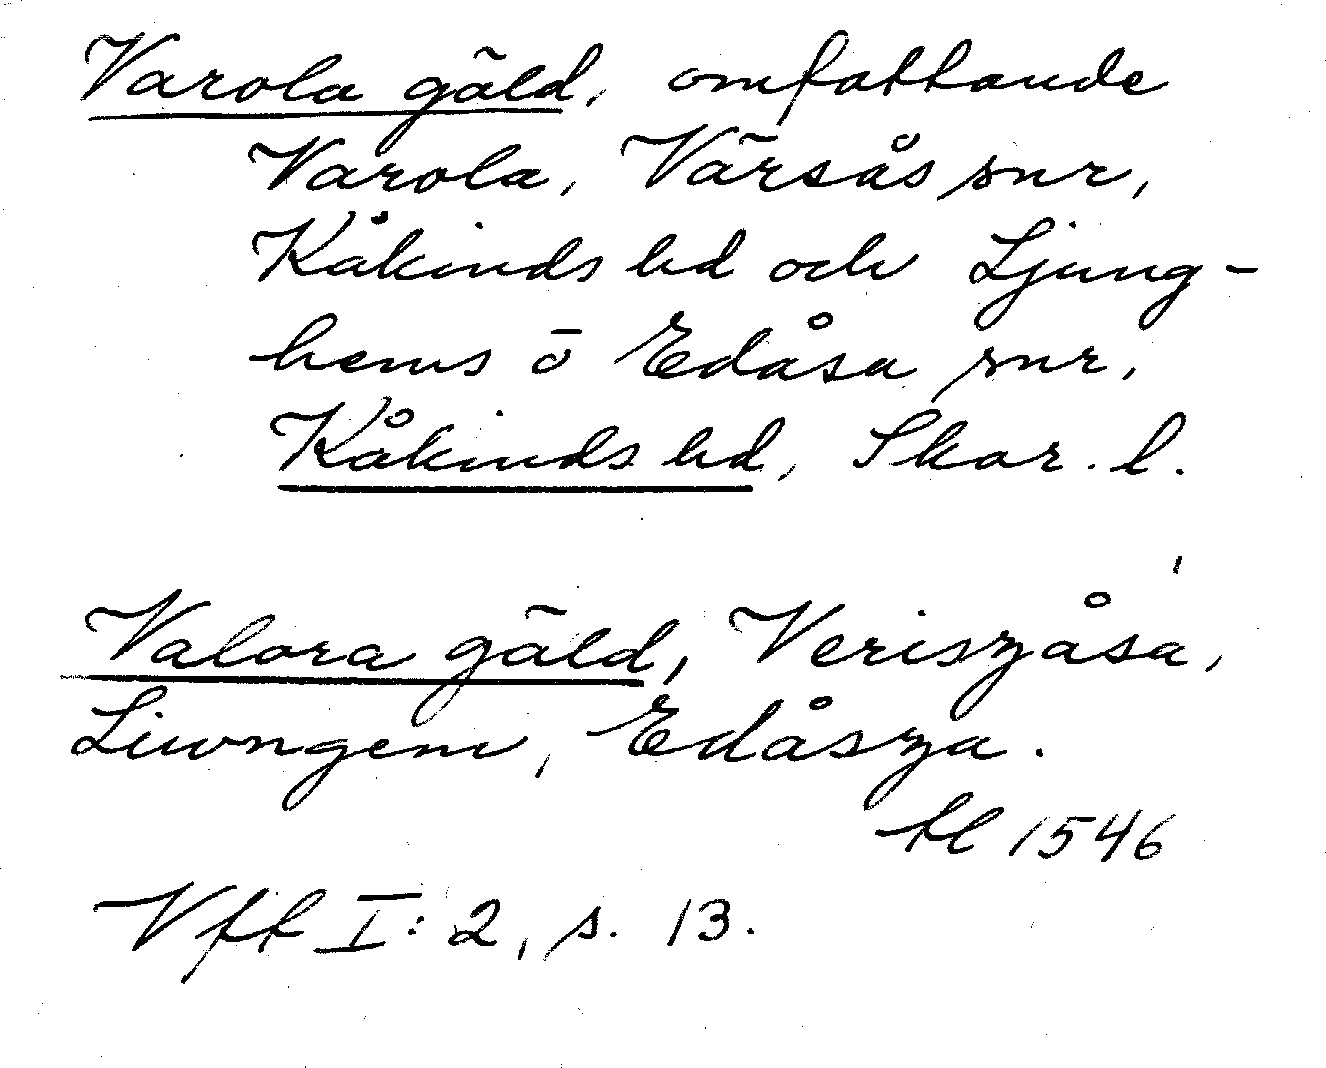 Varola gäld, omfattande
Varola, Värsås snr,
Kåkinds hd och Ljung-
hems o Edåsa snr,
Kåkinds hd, Skar. l.
Valora gäld, Veriszåsa,
Liwngem, Edåsza.
tl 1546
Vft I:2, s. 13.